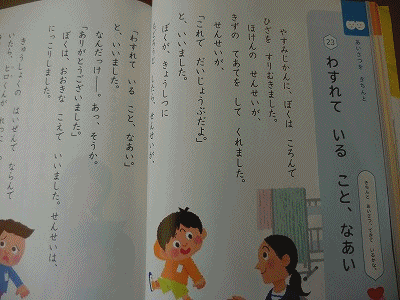 あいさつを きちんと
23
わすれて いる こと、なあい
きちんと あいさつ できて いるかな。
やすみじかんに、ぼくは ころんで
ひざを すりむきました。
ほけんの せんせいが、
きずの てあてを して くれました。
せんせいが、
「これで だいじょうぶだよ。」
と、いいました。
ぼくが、きょうしつに
せんせいが、
「わすれて いる こと、なあい。」
と、いいました。
なんだっけ――。あっ、そうか。
「ありがとうございました。」
ぼくは、おおきな こえで いいました。せんせいは、
にっこりしました。
きゅうしょくの はいぜんで ならんで
いたら、ヒロくんが